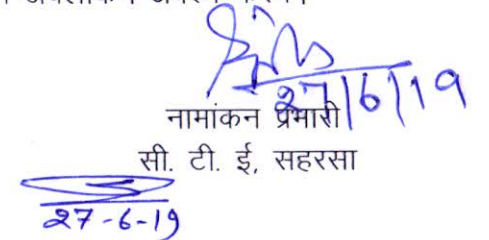 27/6/19
नामांकन प्रभारी
सी. टी. ई, सहरसा
27-6-19